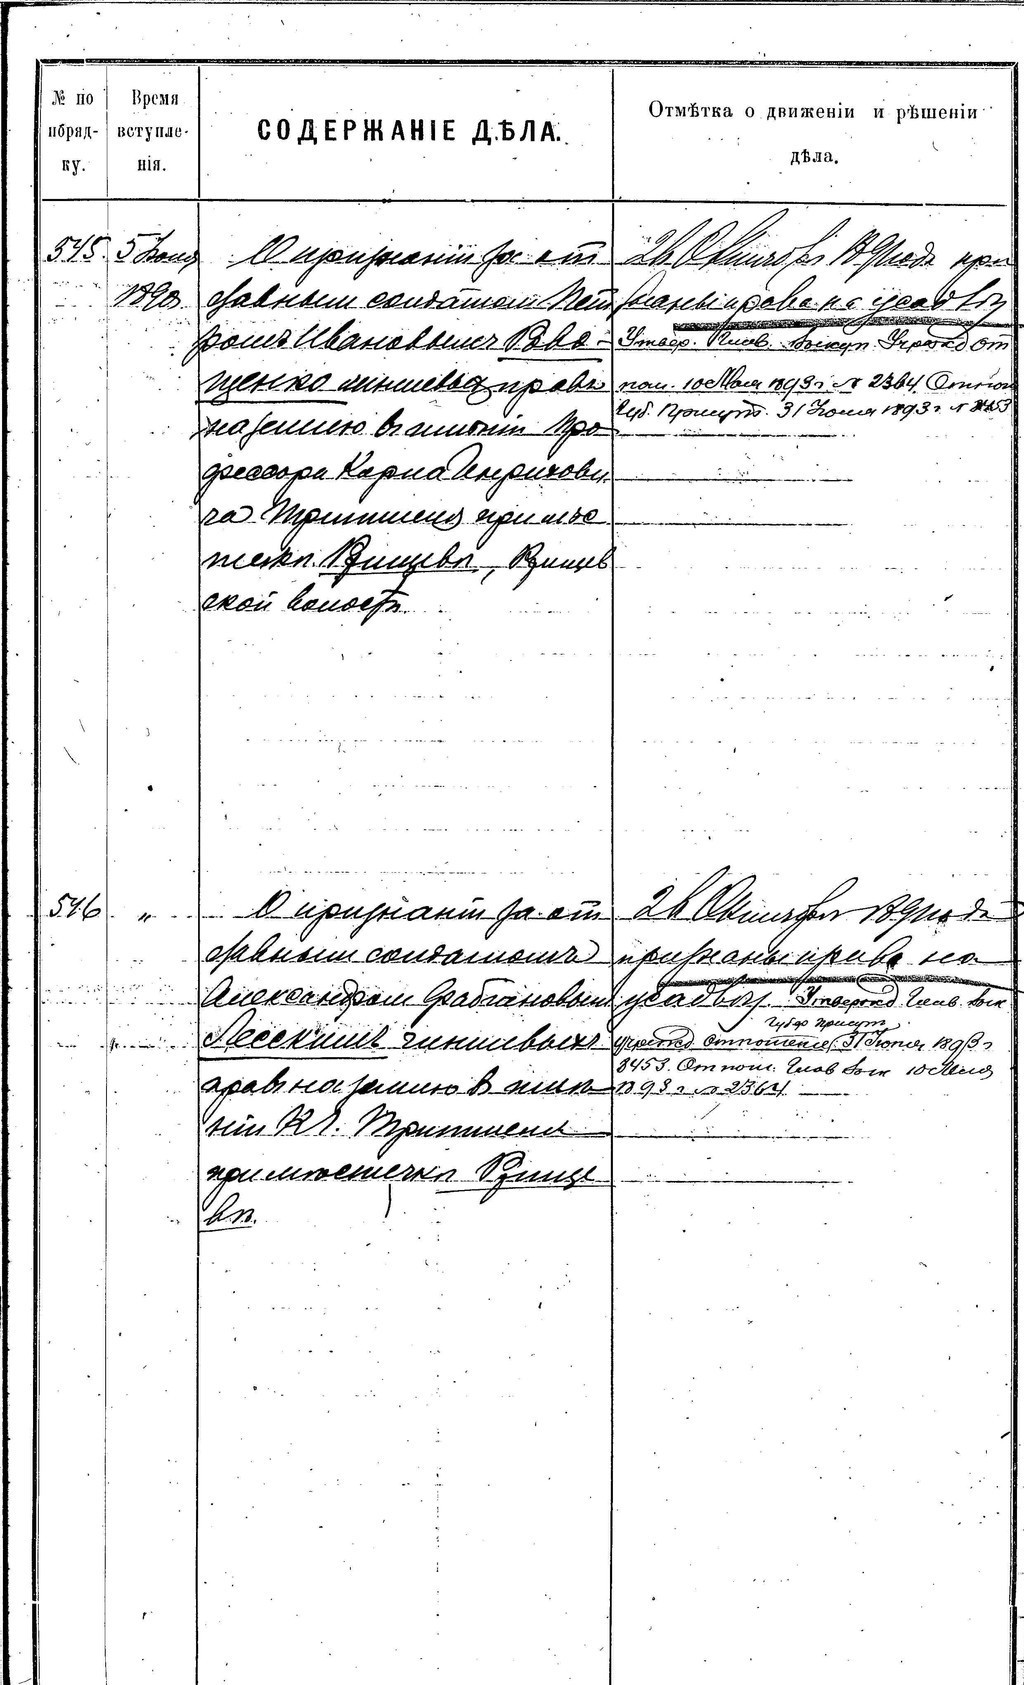 № по порядку.
Время вступленія.
СОДЕРЖАНІЕ ДѢЛА.
Отмѣтка о движеніи и рѣшеніи дѣла.
545. 5 Іюня 1890
О признаніи за от
ставнымъ солдатомъ Пет
ромъ Ивановымъ
щенко чиншевыхъ правъ
на землю въ имѣніи Про
фессора Карла Генрихови
ча Триттшеля при мѣс
течкѣ Ржищевѣ, Ржищев
ской волости.
26 Октября 189 года при
знаны права на усадьбу
Утвер. Глав. Выкуп. Учрежд от
нош. 10 Мая 1893 г № 2364 Отнош
Губ. Присут. 31 Іюля 1893 г № 8453
546 „
О признаніи за от
ставнымъ солдатомъ
Александромъ Фабіановымъ
Лесскимъ чиншевыхъ
правъ на землю въ имѣ
ніи К. Г. Триттшеля
при мѣстечкѣ Ржище
вѣ.
26 Октября 189 года
признаны права на
усадьбу. Утвержд Глав. Вык
Губ Присут
учрежд отношеніе 31 Іюля 1893 г
8453. Отнош. Глав Вык 10 Мая
1893 г № 2364